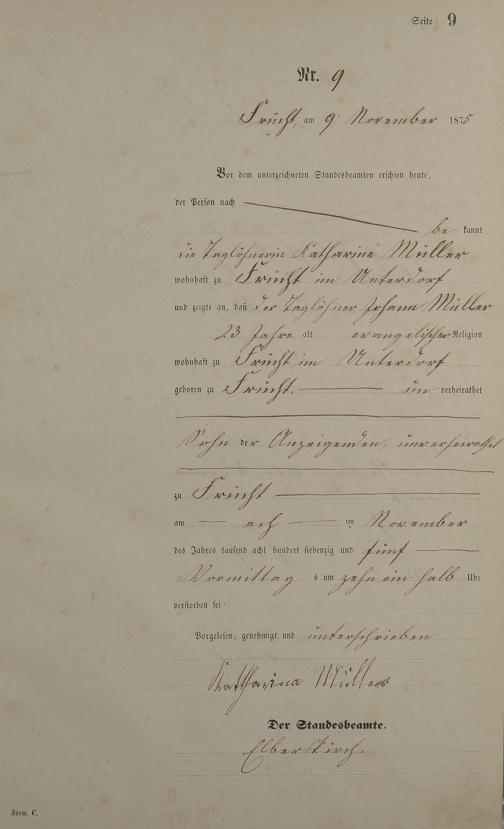 Seite 9
Nr. 9
Frücht, am 9 November 1875
Vor dem unterzeichneten Standesbeamten erschien heute,
der Person nach
be kannt
die Taglöhnerin Katharine Müller
wohnhaft zu Frücht im Unterdorf
und zeigte an, daß der Taglöhner Johann Müller
23 Jahre alt evangelischer Religion
wohnhaft zu Frücht im Unterdorf
geboren zu Frücht. un verheirathet
Sohn der Anzeigenden, unverheirathet
zu Frücht
am ach ten November
des Jahres tausend acht hundert siebenzig und fünf
Vormittag s um zehn ein halb Uhr
verstorben sei.
Vorgelesen, genehmigt und unterschrieben
Katharina Müller
Der Standesbeamte.
Elberskirch.
Form. C.